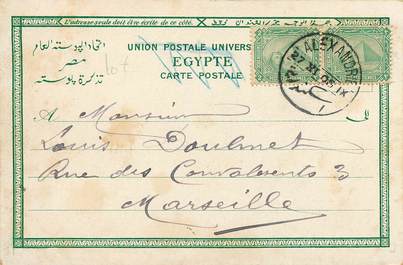 L'adresse seule doit être écrite de ce côté.
اتحاد البوسته العام
مصر
تذكرة بوسته
UNION POSTALE UNIVERS
EGYPTE
CARTE POSTALE
ALEXANDRI
27 XI
A Monsieur
Louis Doulmet
Rue des Convalescents 3
Marseille